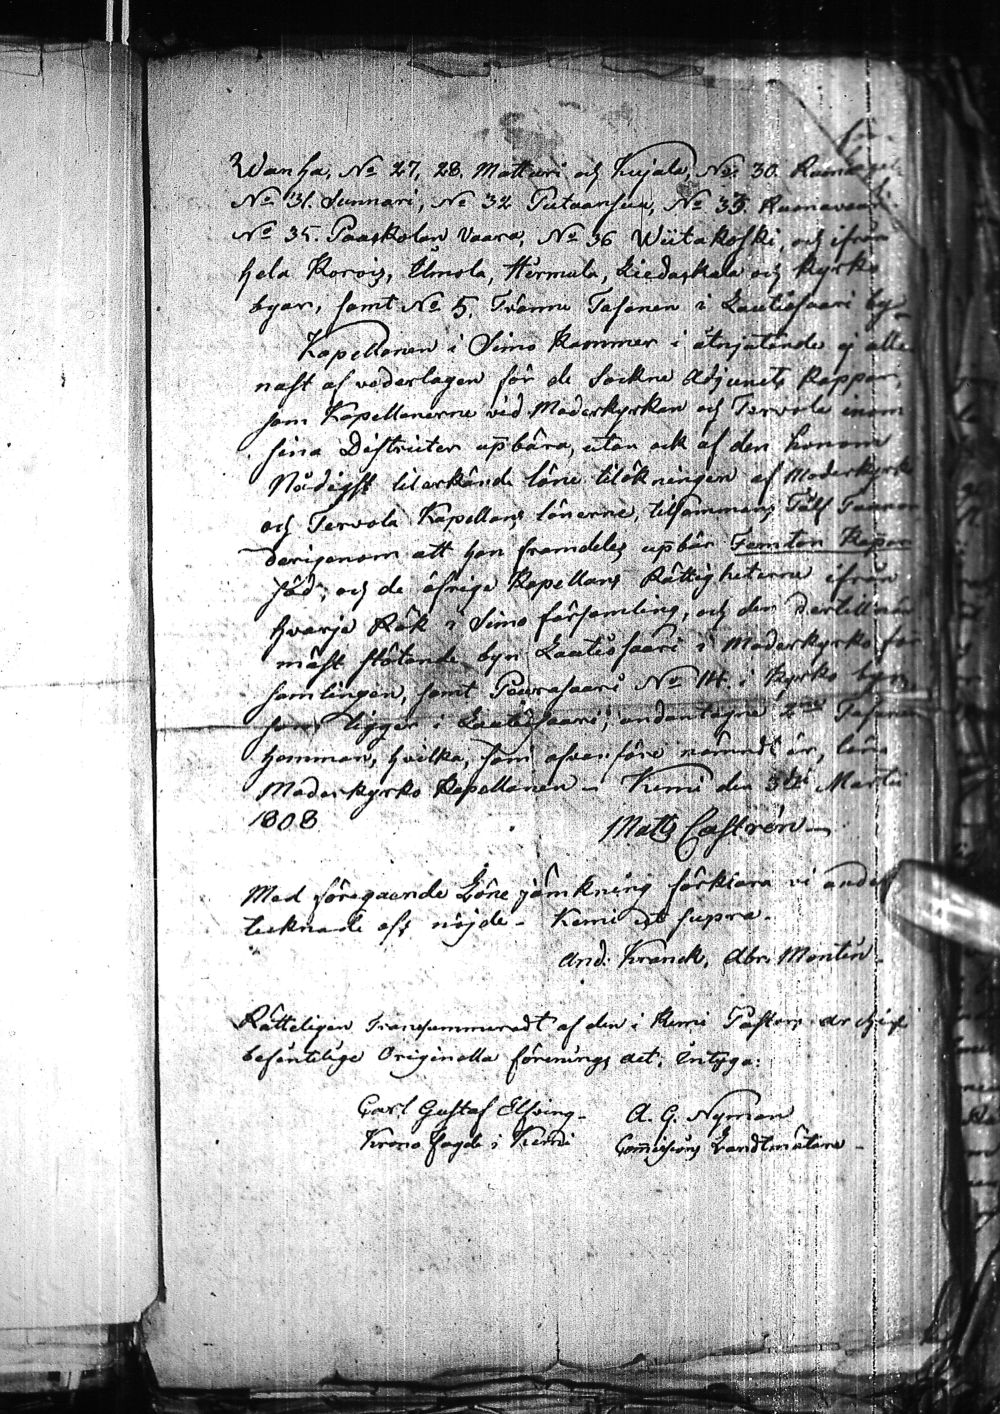 Wanha, No 27, 28, Mattari och Kujala, No 30
No 31. Sunnari, No 32 Putaansuu, No 33. Ruonavaara
No 35. Paaskolan Vaara, No 36 Wiitakoski, och ifrån
hela Korois, Ilmola, Hermula, Liedaskala och Kyrko
byar, samt No 5. Tvänne Tasanen i Lautiosaari by,
Kapellanen i Simo kommer i åtnjutande ej alle
nast af vederlagen för de Sockne Adjuncts kappar,
som Kapellanerne vid Moderkyrkan och Tervola inom
sina Districter upbära, utan ock af den honom
Nådigst tilerkände löne tilökningen af Moderkyrko
och Tervola Kapellans lönerne, tilsammans Tolf Tunnor
derigenom att han framdeles upbär Femton Kappar
Säd, och de öfrige Kapellans Rättigheterne ifrån
hvarje Rök i Simo församling, och den dertill när
mast stötande byn Lautiosaari i Moderkyrko för
samlingen, samt Paurasaari No 14. i Kyrko byn
som ligger i Lautiosaari, undantagne 2ne Tasanen
hemman, hvilka, som ofvanföre nämndt är, löna
Moderkyrko Kapellanen – Kemi den 3die Martii
1808 Matts Castrén –
Med föregaende Löne jämkning förklara vi under
tecknade oss nöjde – Kemi ut supra.
And: Kranck, Abr. Montin.
Rätteligen transsummeradt af den i Kemi Pastors archif
befintelige Originella förenings act, intyga:
Carl Gustaf Elfving – A. G. Nyman
Krono fogde i Kemi Commissions Landtmätare –